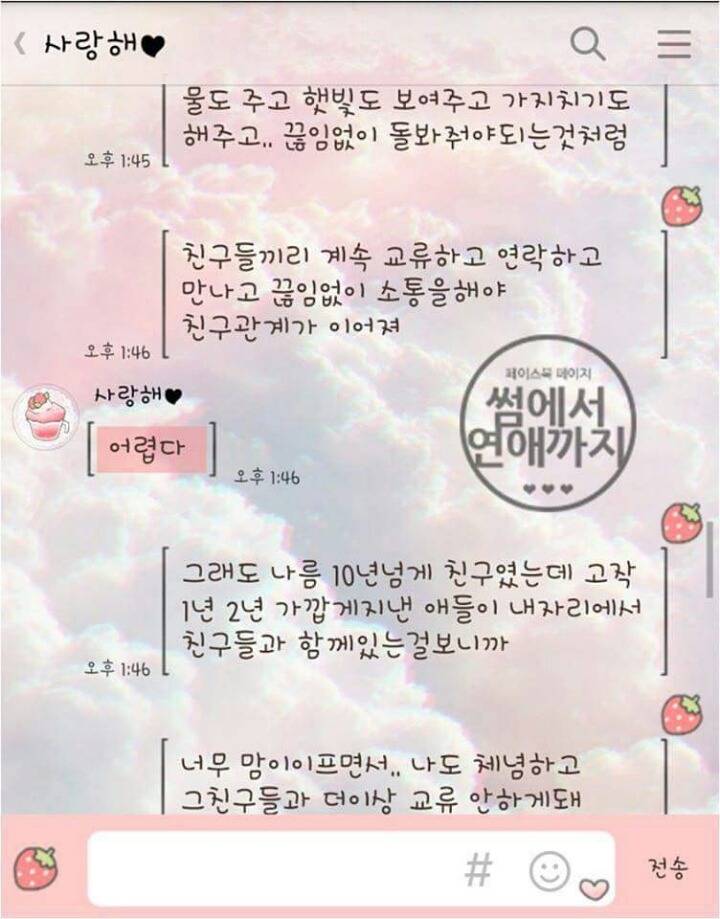 사랑해♥
물도 주고 햇빛도 보여주고 가지치기도
해주고.. 끊임없이 돌봐줘야되는것처럼
오후 1:45
친구들끼리 계속 교류하고 연락하고
만나고 끊임없이 소통을해야
친구관계가 이어져
오후 1:46
페이스북 페이지
썸에서
연애까지
♥♥♥
사랑해♥
어렵다
오후 1:46
그래도 나름 10년넘게 친구였는데 고작
1년 2년 가깝게지낸 애들이 내자리에서
친구들과 함께있는걸보니까
오후 1:46
너무 맘이이프면서.. 나도 체념하고
그친구들과 더이상 교류 안하게돼
#
전송